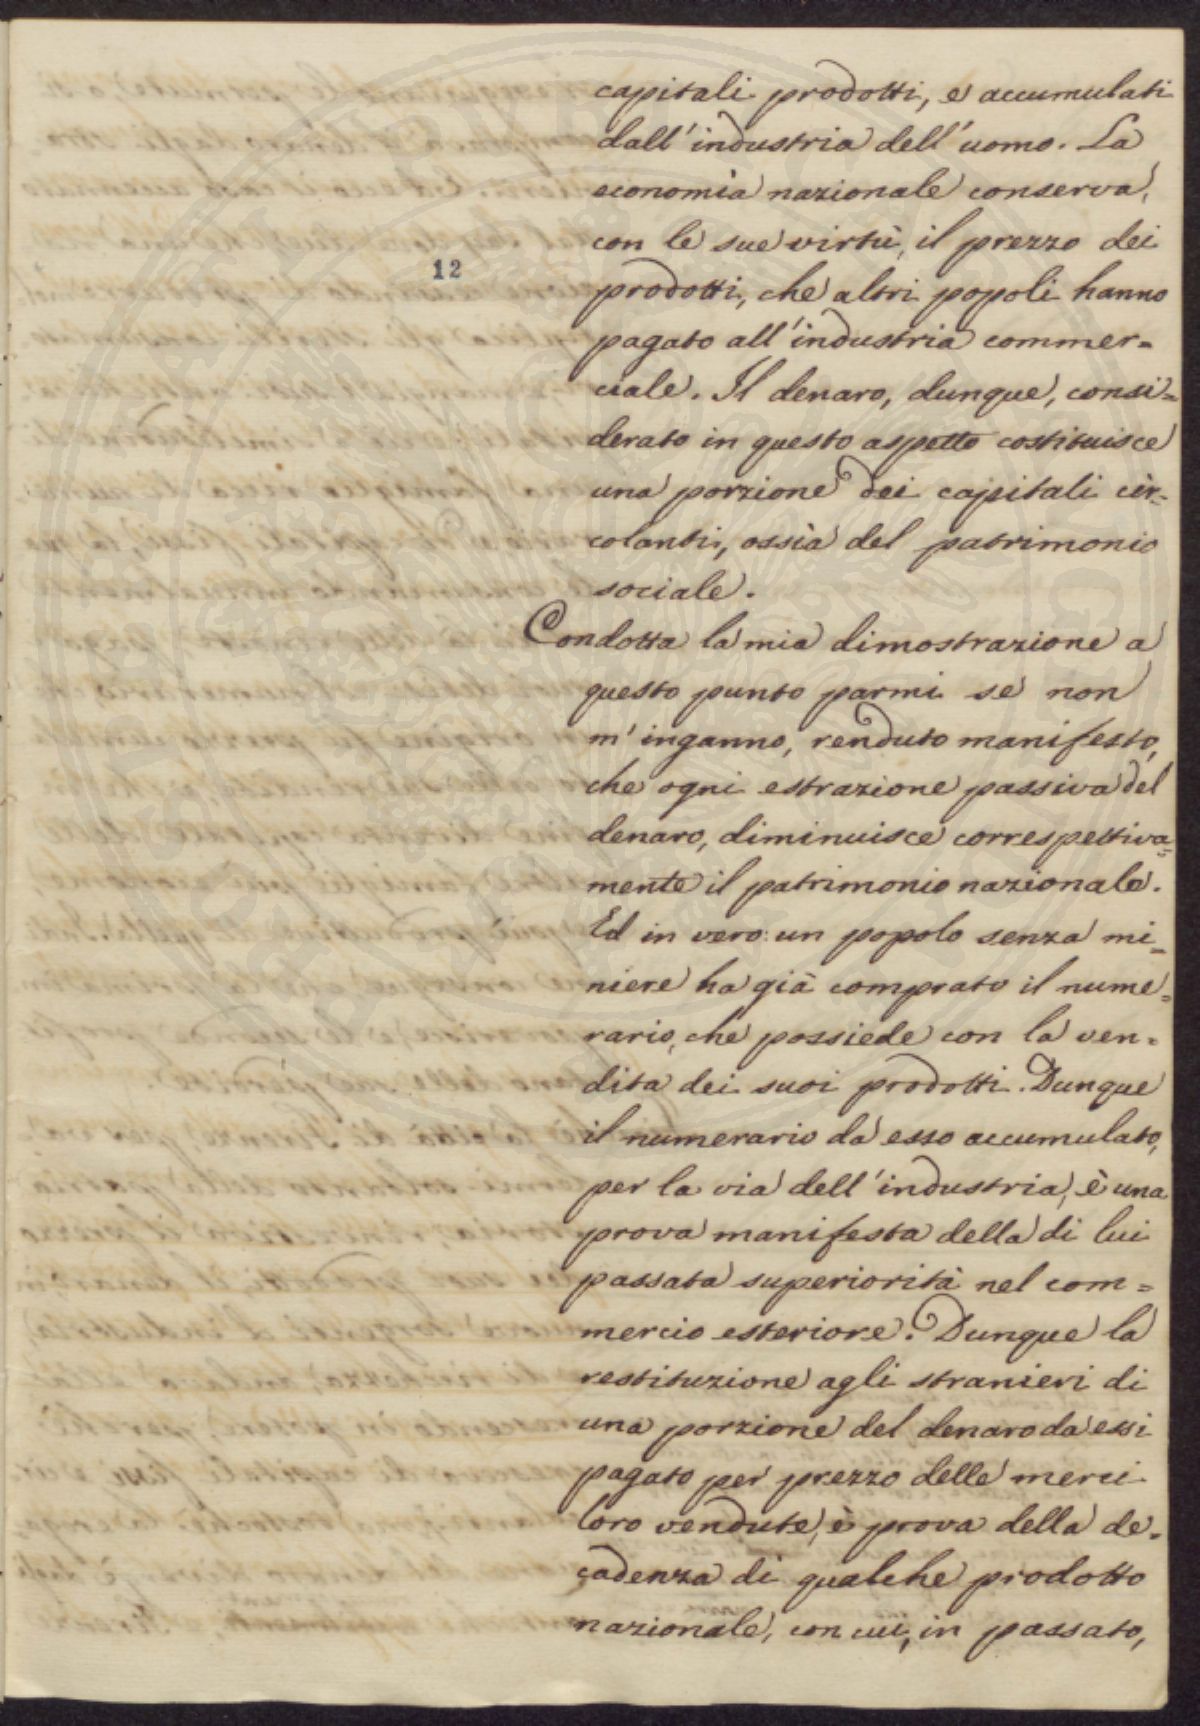 capitali prodotti, e accumulati
dall'industria dell'uomo. La
economia nazionale conserva,
con le sue virtù, il prezzo dei
12
prodotti, che altri popoli hanno
pagato all'industria commer=
ciale. Il denaro, dunque, consi=
derato in questo aspetto costituisce
una porzione dei capitali cir=
colanti, ossia del patrimonio
sociale.
Condotta la mia dimostrazione a
questo punto parmi se non
m'inganno, renduto manifesto,
che ogni estrazione passiva del
denaro, diminuisce correspettiva=
mente il patrimonio nazionale.
Ed in vero: un popolo senza mi=
niere ha già comprato il nume=
rario, che possiede con la ven=
dita dei suoi prodotti. Dunque
il numerario da esso accumulato,
per la via dell'industria, è una
prova manifesta della di lui
passata superiorità nel com=
mercio esteriore. Dunque la
restituzione agli stranieri di
una porzione del denaro da essi
pagato per prezzo delle merci
loro vendute, è prova della de=
cadenza di qualche prodotto
nazionale, con cui, in passato,